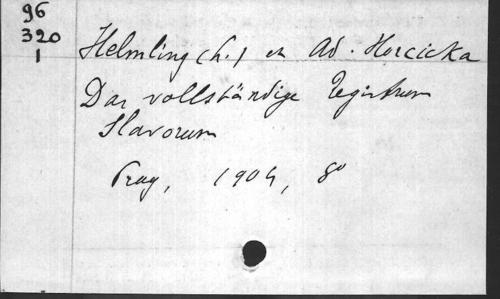 96
320
1
Helmling (L.) en Ad. Horcicka
Das vollständige Registrum
Slavorum
Prag, 1904, 8°